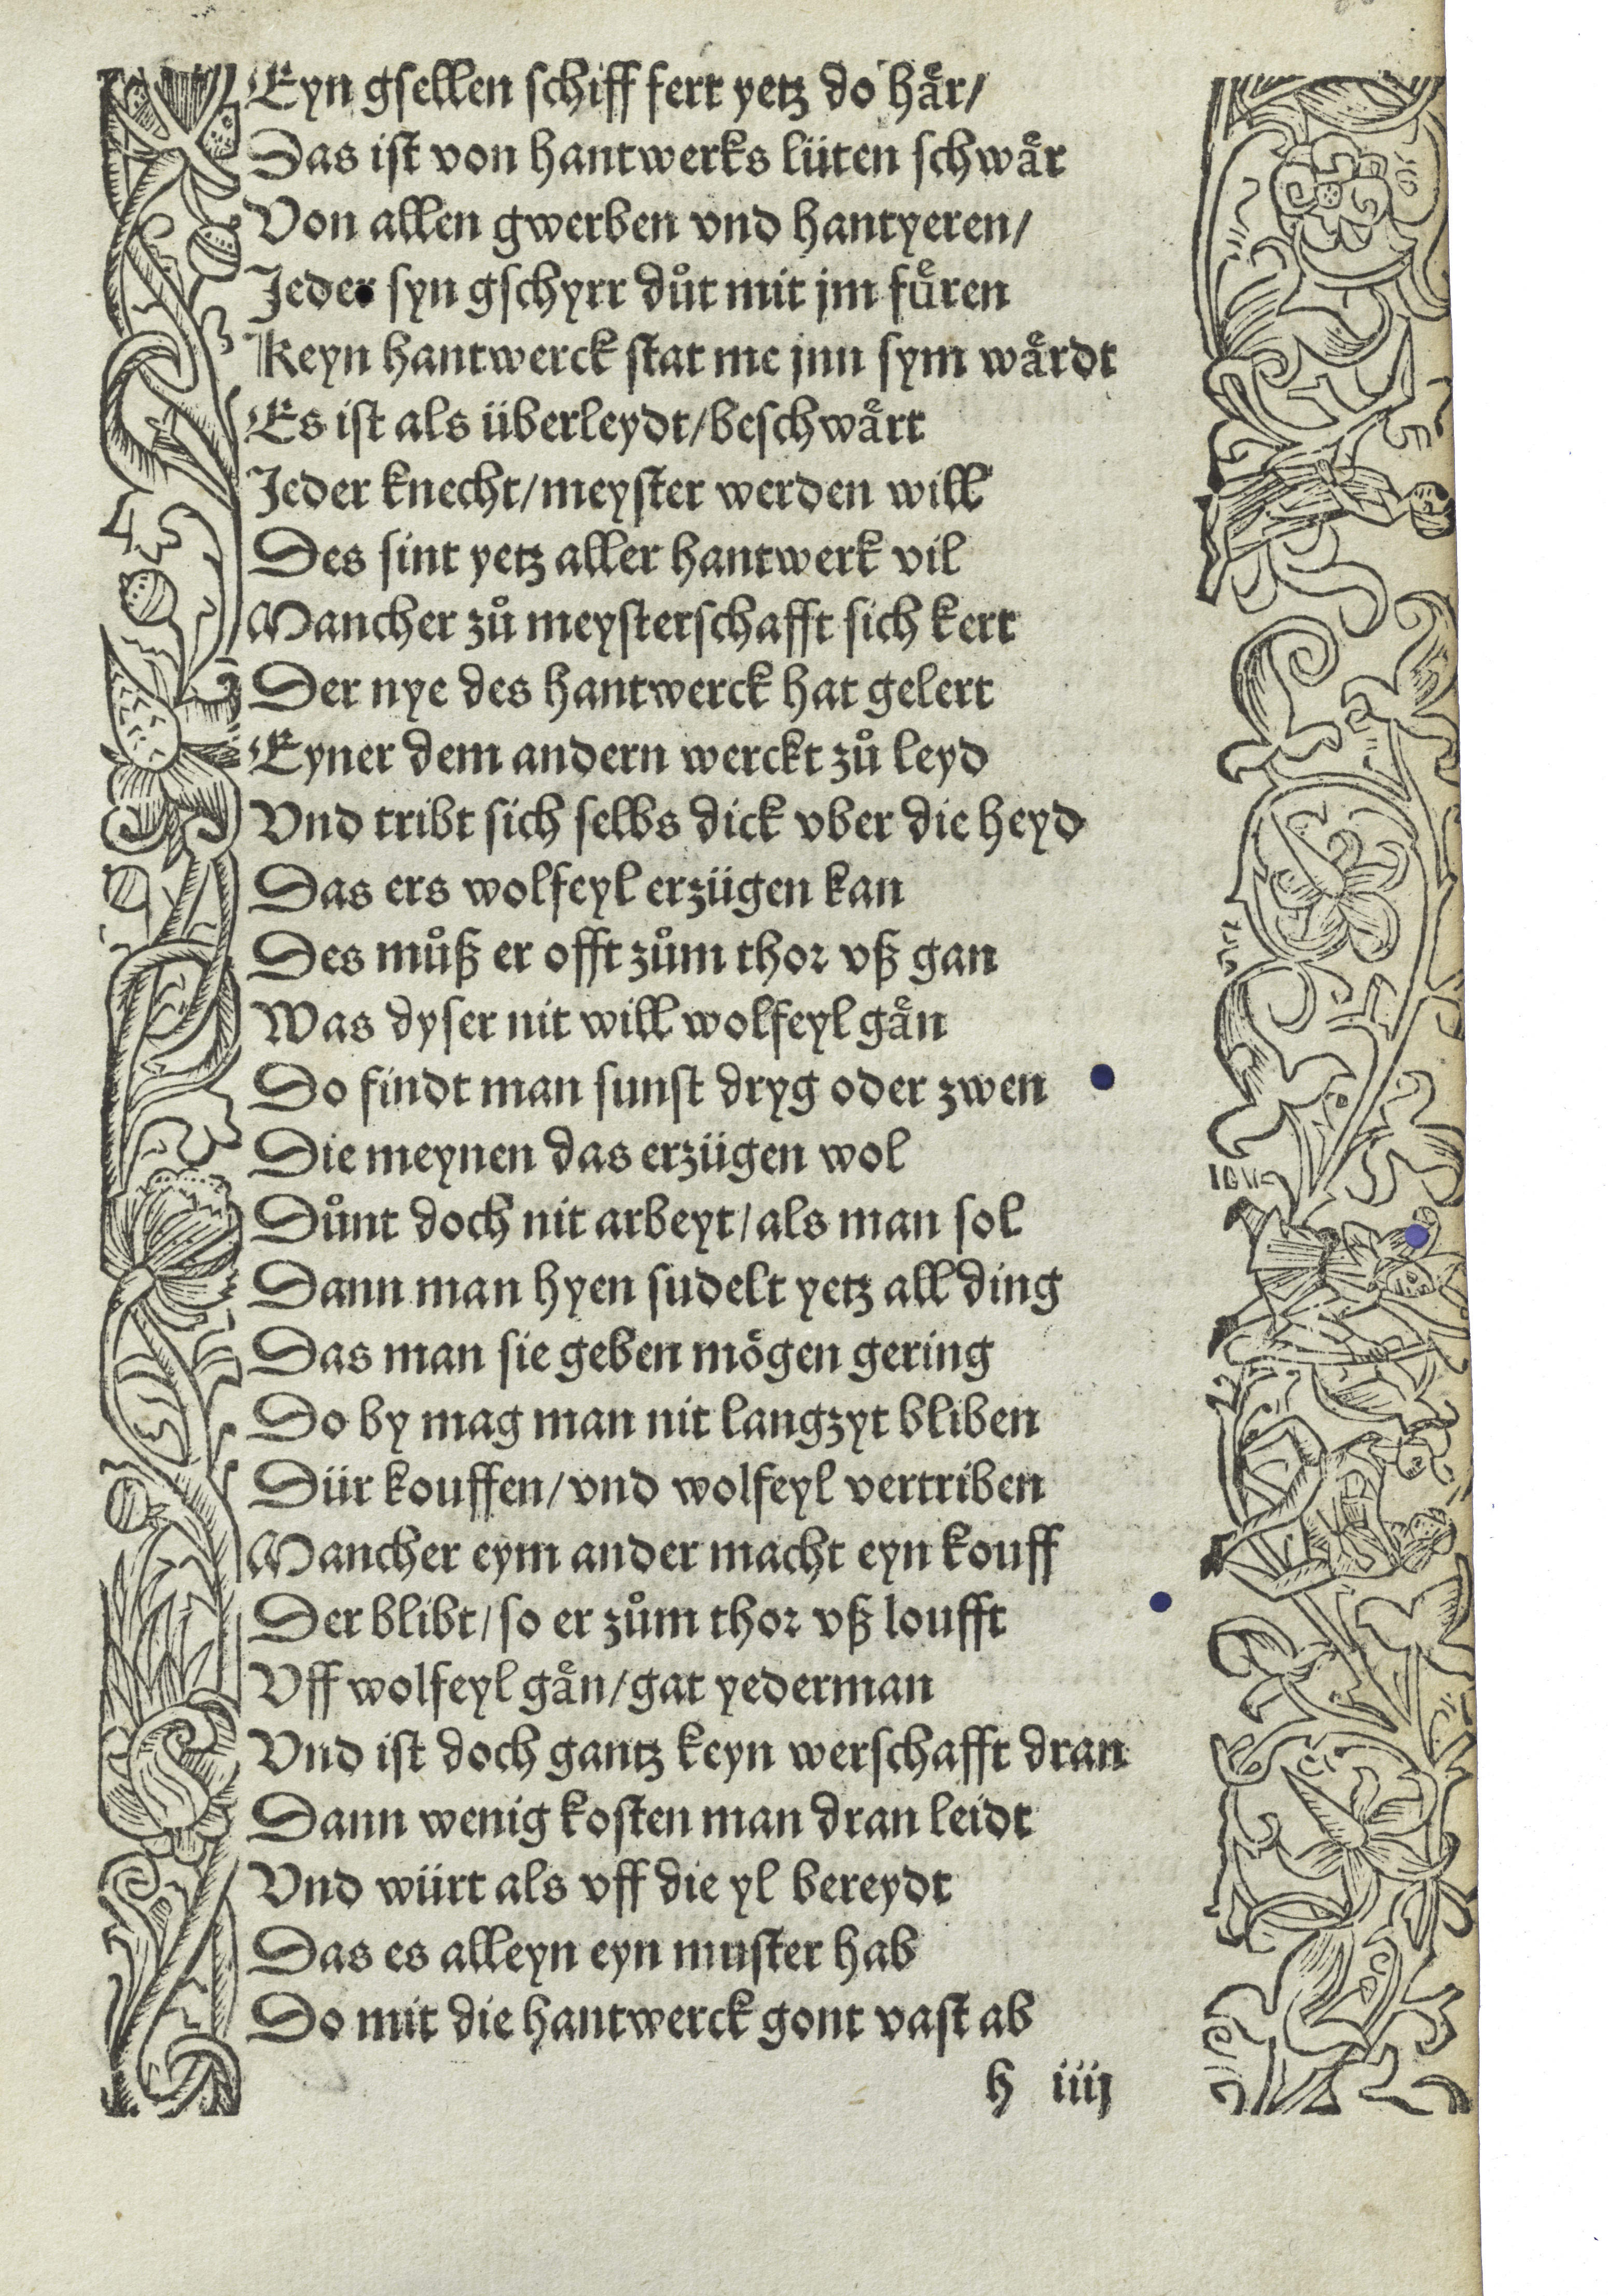 Eyn gsellen schiff fert yetz do haͤr/
Das ist von hantwerks lüten schwaͤr
Von allen gwerben vnd hantyeren/
Jeder syn gschyrr duͦt mit jm fuͤren
Keyn hantwerck stat me jnn sym waͤrdt
Es ist als überleydt/beschwaͤrt
Jeder knecht/meyster werden will
Des sint yetz aller hantwerk vil
Mancher zuͦ meysterschafft sich kert
Der nye des hantwerck hat gelert
Eyner dem andern werckt zuͦ leyd
Vnd tribt sich selbs dick vber die heyd
Das ers wolfeyl erzügen kan
Des muͦß er offt zuͦm thor vß gan
Was dyser nit will wolfeyl gaͤn
Do findt man sunst dryg oder zwen
Die meynen das erzügen wol
Duͦnt doch nit arbeyt/als man sol
Dann man hyen sudelt yetz all ding
Das man sie geben moͤgen gering
Do by mag man nit langzyt bliben
Dür kouffen/vnd wolfeyl vertriben
Mancher eym ander macht eyn kouff
Der blibt/so er zuͦm thor vß loufft
Vff wolfeyl gaͤn/gat yederman
Vnd ist doch gantz keyn werschafft dran
Dann wenig kosten man dran leidt
Vnd würt als vff die yl bereydt
Das es alleyn eyn muster hab
Do mit die hantwerck gont vast ab
h iiij